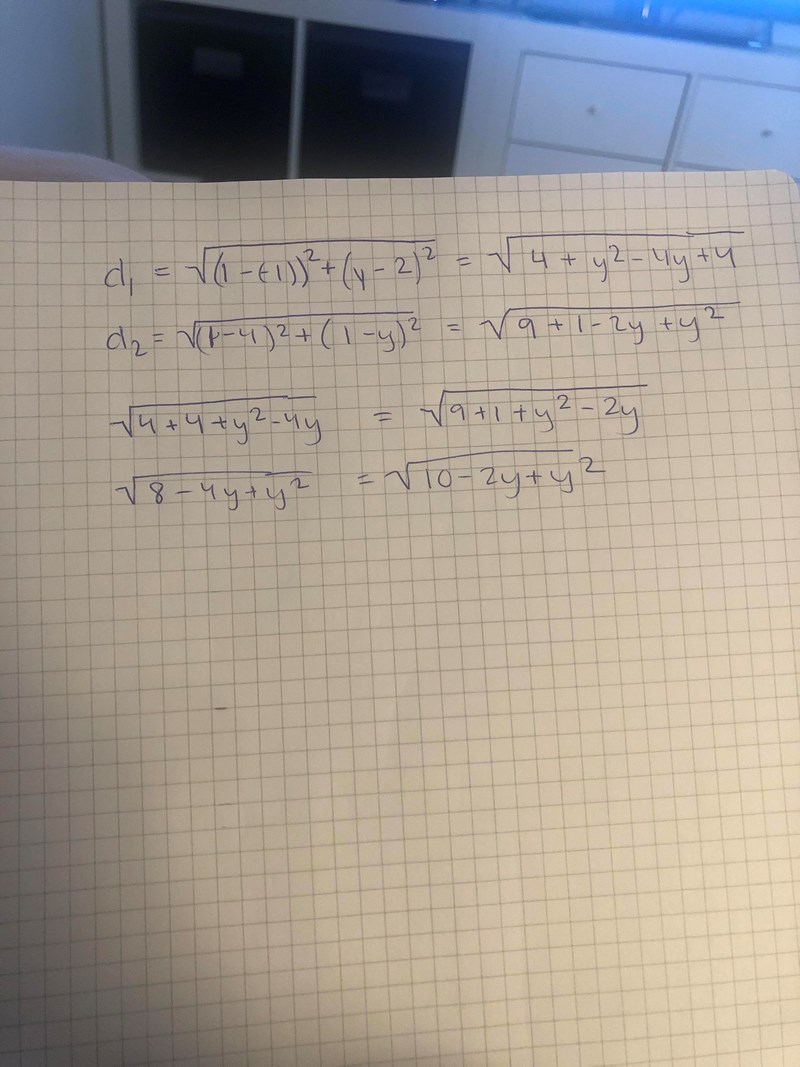 d₁ = √((1-(-1))²+(y-2)²) = √(4+y²-4y+4)
d₂ = √((1-4)²+(1-y)²) = √(9+1-2y+y²)
√(4+4+y²-4y) = √(9+1+y²-2y)
√(8-4y+y²) = √(10-2y+y²)